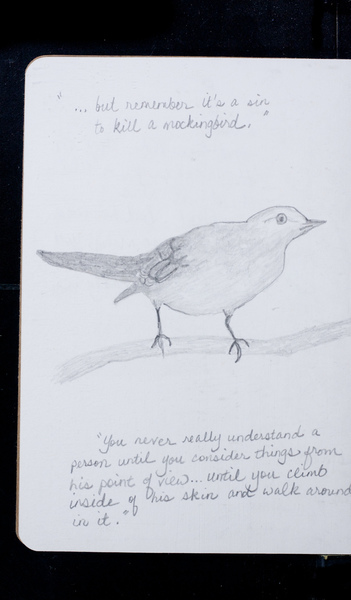 "... but remember it's a sin
to kill a mockingbird."
"You never really understand a
person until you consider things from
his point of view... until you climb
inside of his skin and walk around
in it."